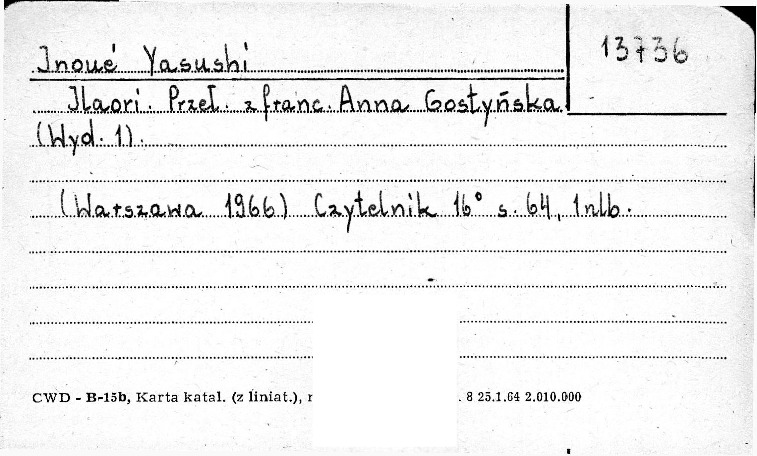 13736
Inoué Yasushi
Ilaori. Przeł. z franc. Anna Gostyńska.
(Wyd. 1).
(Warszawa 1966) Czytelnik 16° s. 64, 1 nlb.
CWD - B-15b, Karta katal. (z liniat.), r . 8 25.1.64 2.010.000